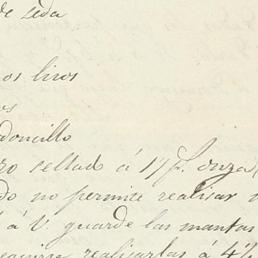 de seda
os liros
os
doncillo
ro sellado á 1 1/2 p. onza
do no permite realisar
á V. guarde las mantas
realisarlas á 4 1/2